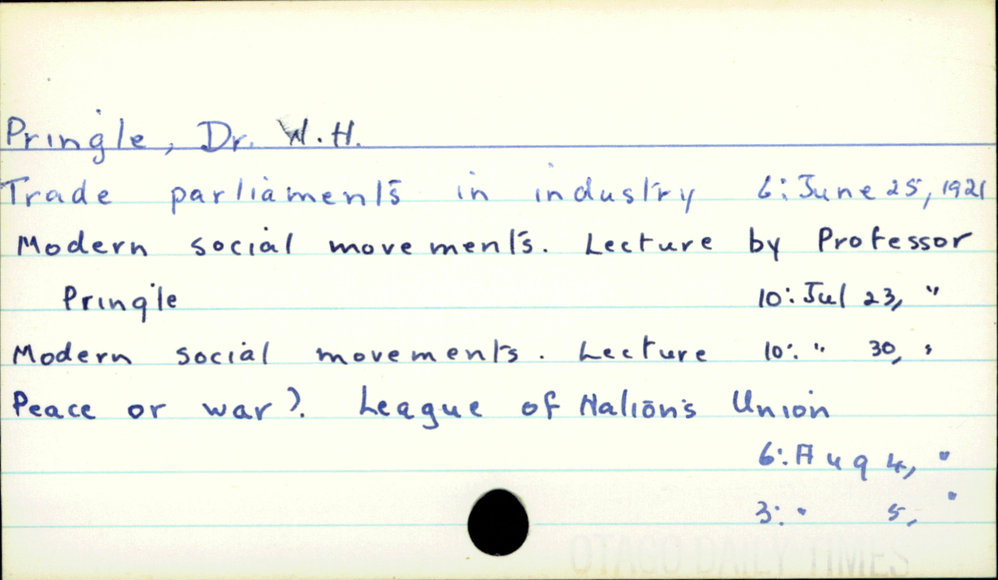 Pringle, Dr. W.H.
Trade parliaments in industry 6: June 25, 1921
Modern social movements. Lecture by Professor
Pringle 10: Jul 23, "
Modern social movements. Lecture 10: " 30, "
Peace or war?. League of Nations Union
6: Aug 4, "
3: " 5, "
OTAGO DAILY TIMES